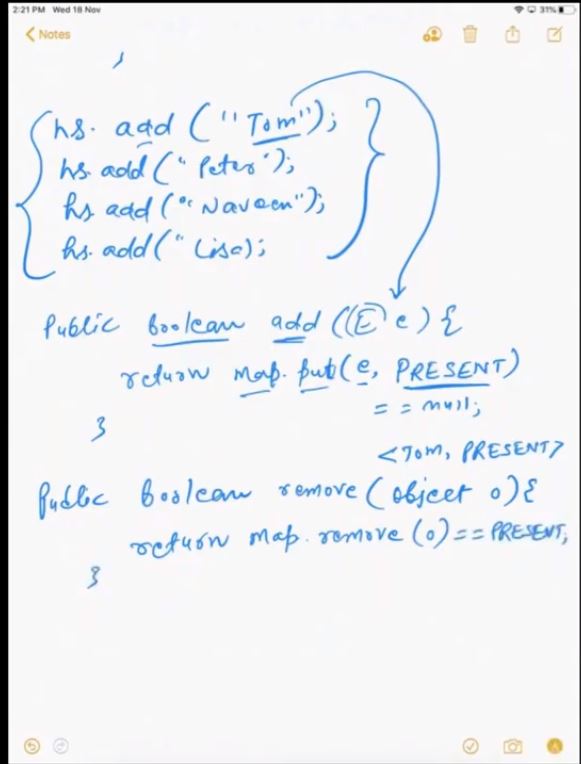 2:21 PM Wed 18 Nov
31%
Notes
}
hs. add ("Tom");
hs. add ("Peter");
hs. add ("Naveen");
hs. add ("Lisa);
Public boolean add (E e) {
return map. put(e, PRESENT)
== null;
}
<Tom, PRESENT>
Public boolean remove (object o) {
return map. remove (o) == PRESENT;
}